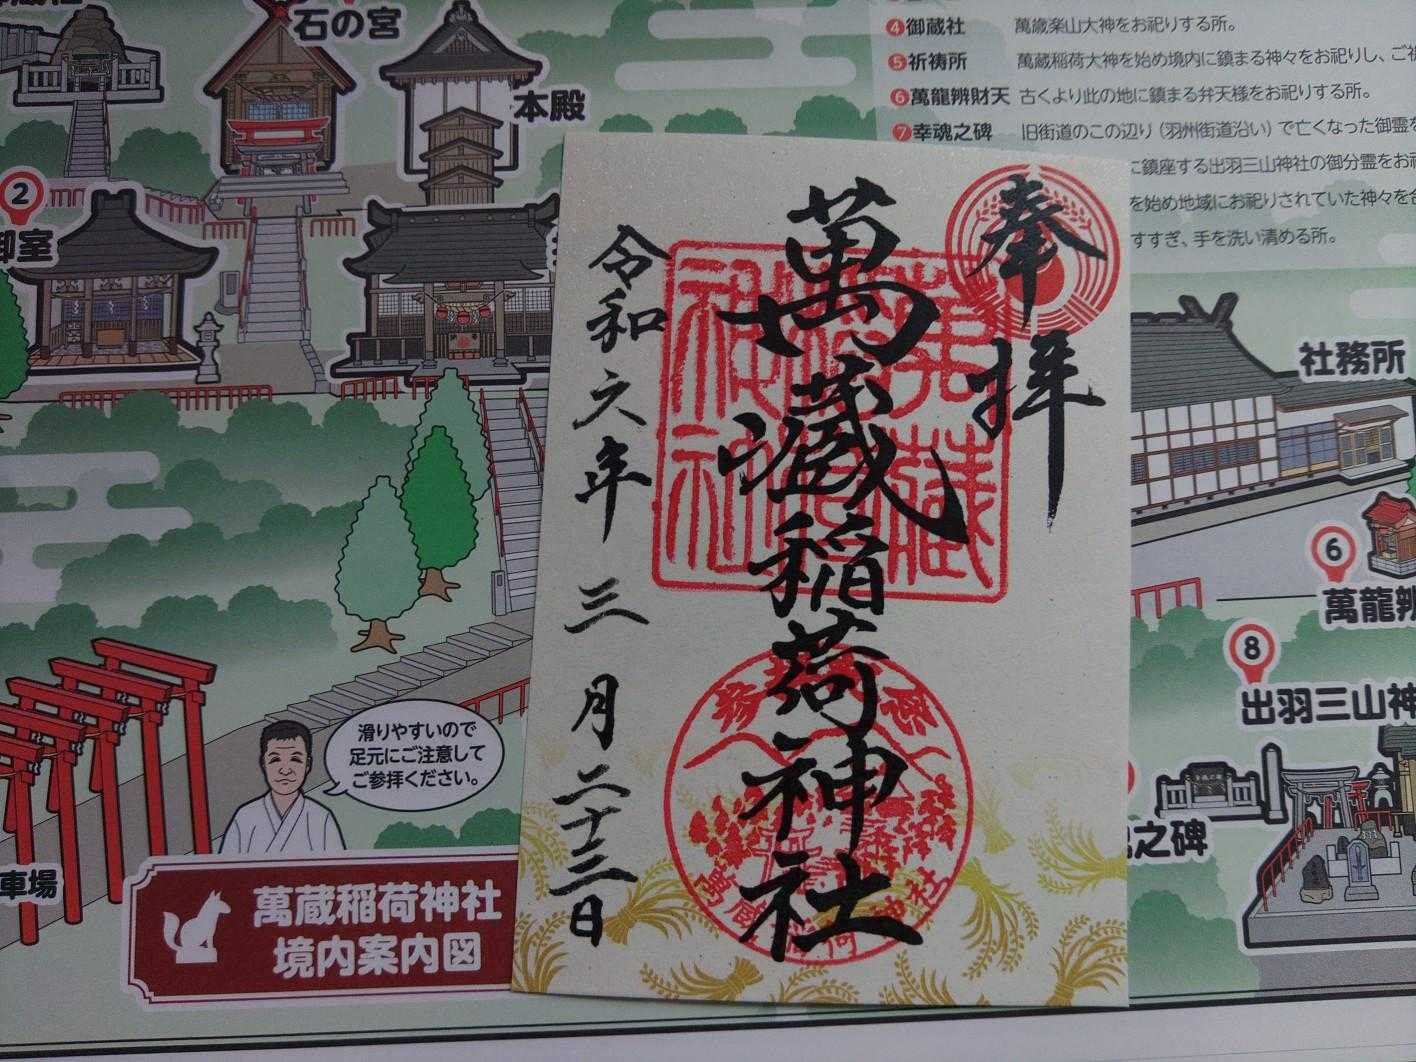 石の宮
本殿
②
御室
④御蔵社 萬歳楽山大神をお祀りする所。
⑤祈祷所 萬蔵稲荷大神を始め境内に鎮まる神々をお祀りし、ご祈
⑥萬龍辨財天 古くより此の地に鎮まる弁天様をお祀りする所。
⑦幸魂之碑 旧街道のこの辺り（羽州街道沿い）で亡くなった御霊を
に鎮座する出羽三山神社の御分霊をお祀
を始め地域にお祀りされていた神々を合
すすぎ、手を洗い清める所。
奉拝
萬蔵稲荷神社
令和六年三月二十三日
社務所
6
萬龍辨
8
出羽三山神
之碑
滑りやすいので
足元にご注意して
ご参拝ください。
車場
萬蔵稲荷神社
境内案内図